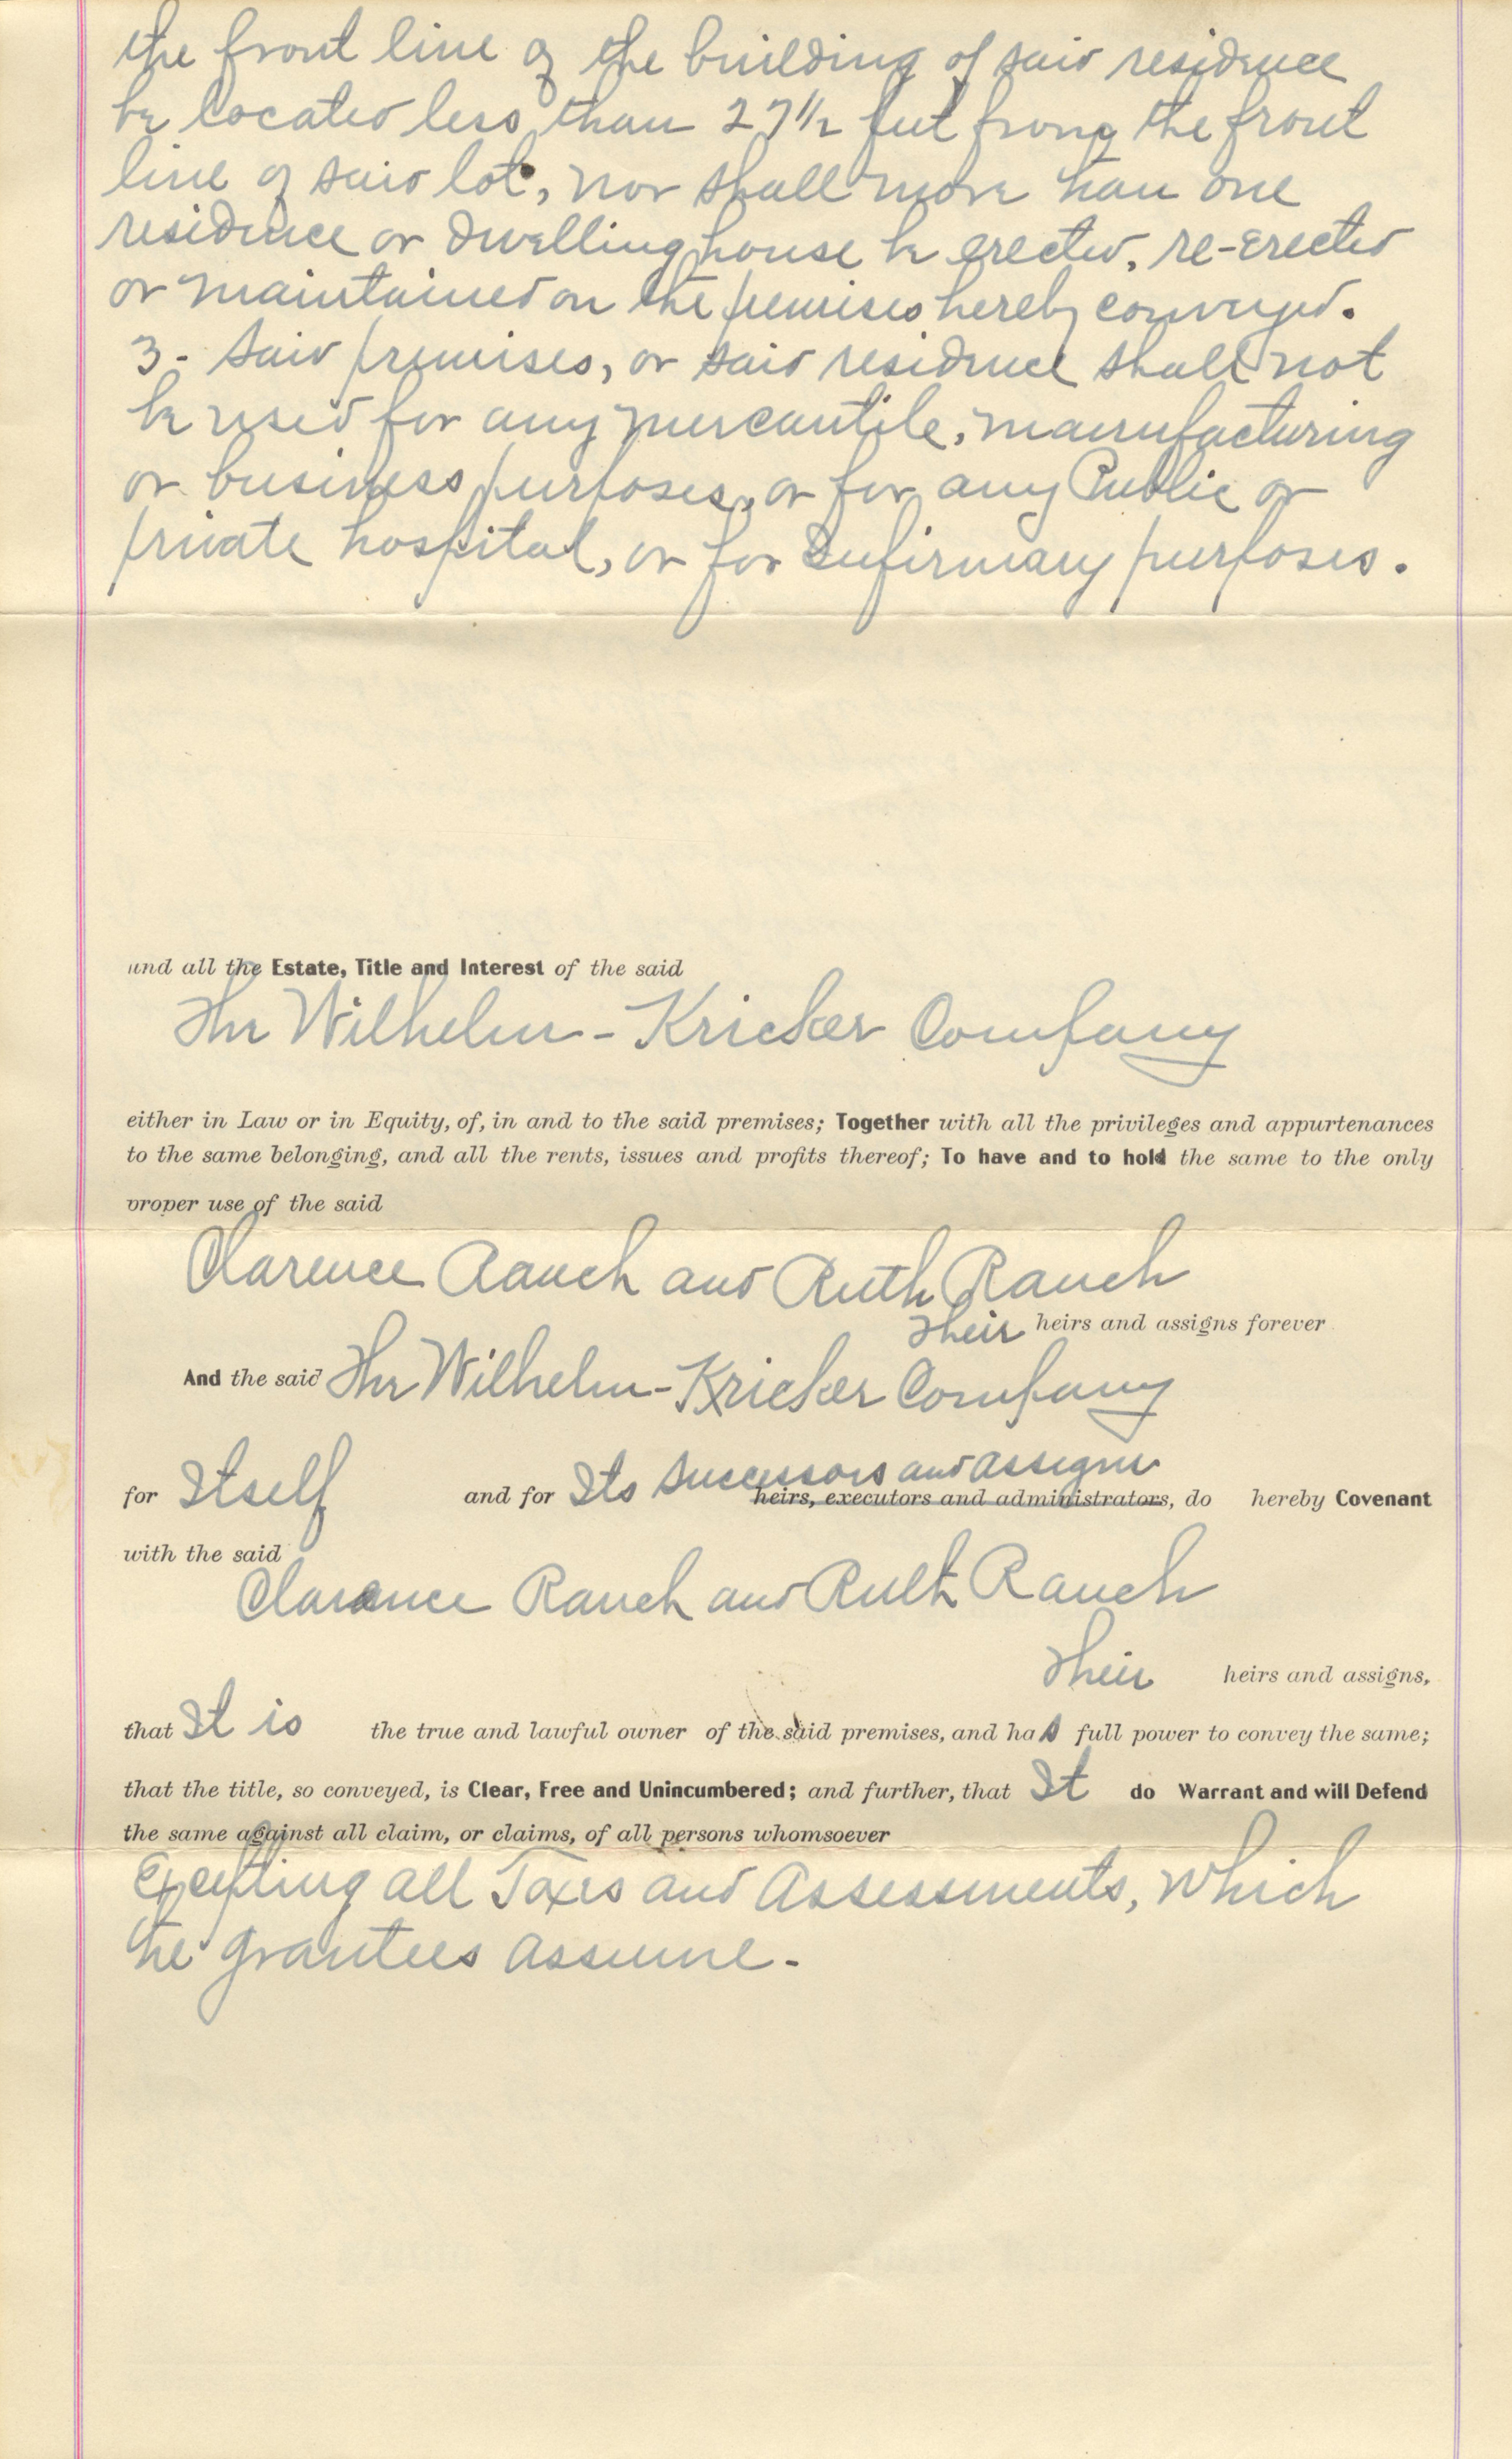 the front line of the building of said residence
be located less than 27 1/2 feet from the front
line of said lot, nor shall more than one
residence or dwelling house be erected, re-erected
or maintained on the premises hereby conveyed.
3- Said premises, or said residence shall not
be used for any mercantile, manufacturing
or business purposes, or for any Public or
private hospital, or for Infirmary purposes.
and all the Estate, Title and Interest of the said
The Wilhelm-Kricker Company
either in Law or in Equity, of, in and to the said premises; Together with all the privileges and appurtenances
to the same belonging, and all the rents, issues and profits thereof; To have and to hold the same to the only
proper use of the said
Clarence Rauch and Ruth Rauch
Their heirs and assigns forever
And the said The Wilhelm-Kricker Company
for Itself and for Its Successors and assigns heirs, executors and administrators, do hereby Covenant
with the said
Clarence Rauch and Ruth Rauch
Their heirs and assigns,
that It is the true and lawful owner of the said premises, and has full power to convey the same;
that the title, so conveyed, is Clear, Free and Unincumbered; and further, that It do Warrant and will Defend
the same against all claim, or claims, of all persons whomsoever
Excepting all Taxes and Assessments, which
the grantees assume.-